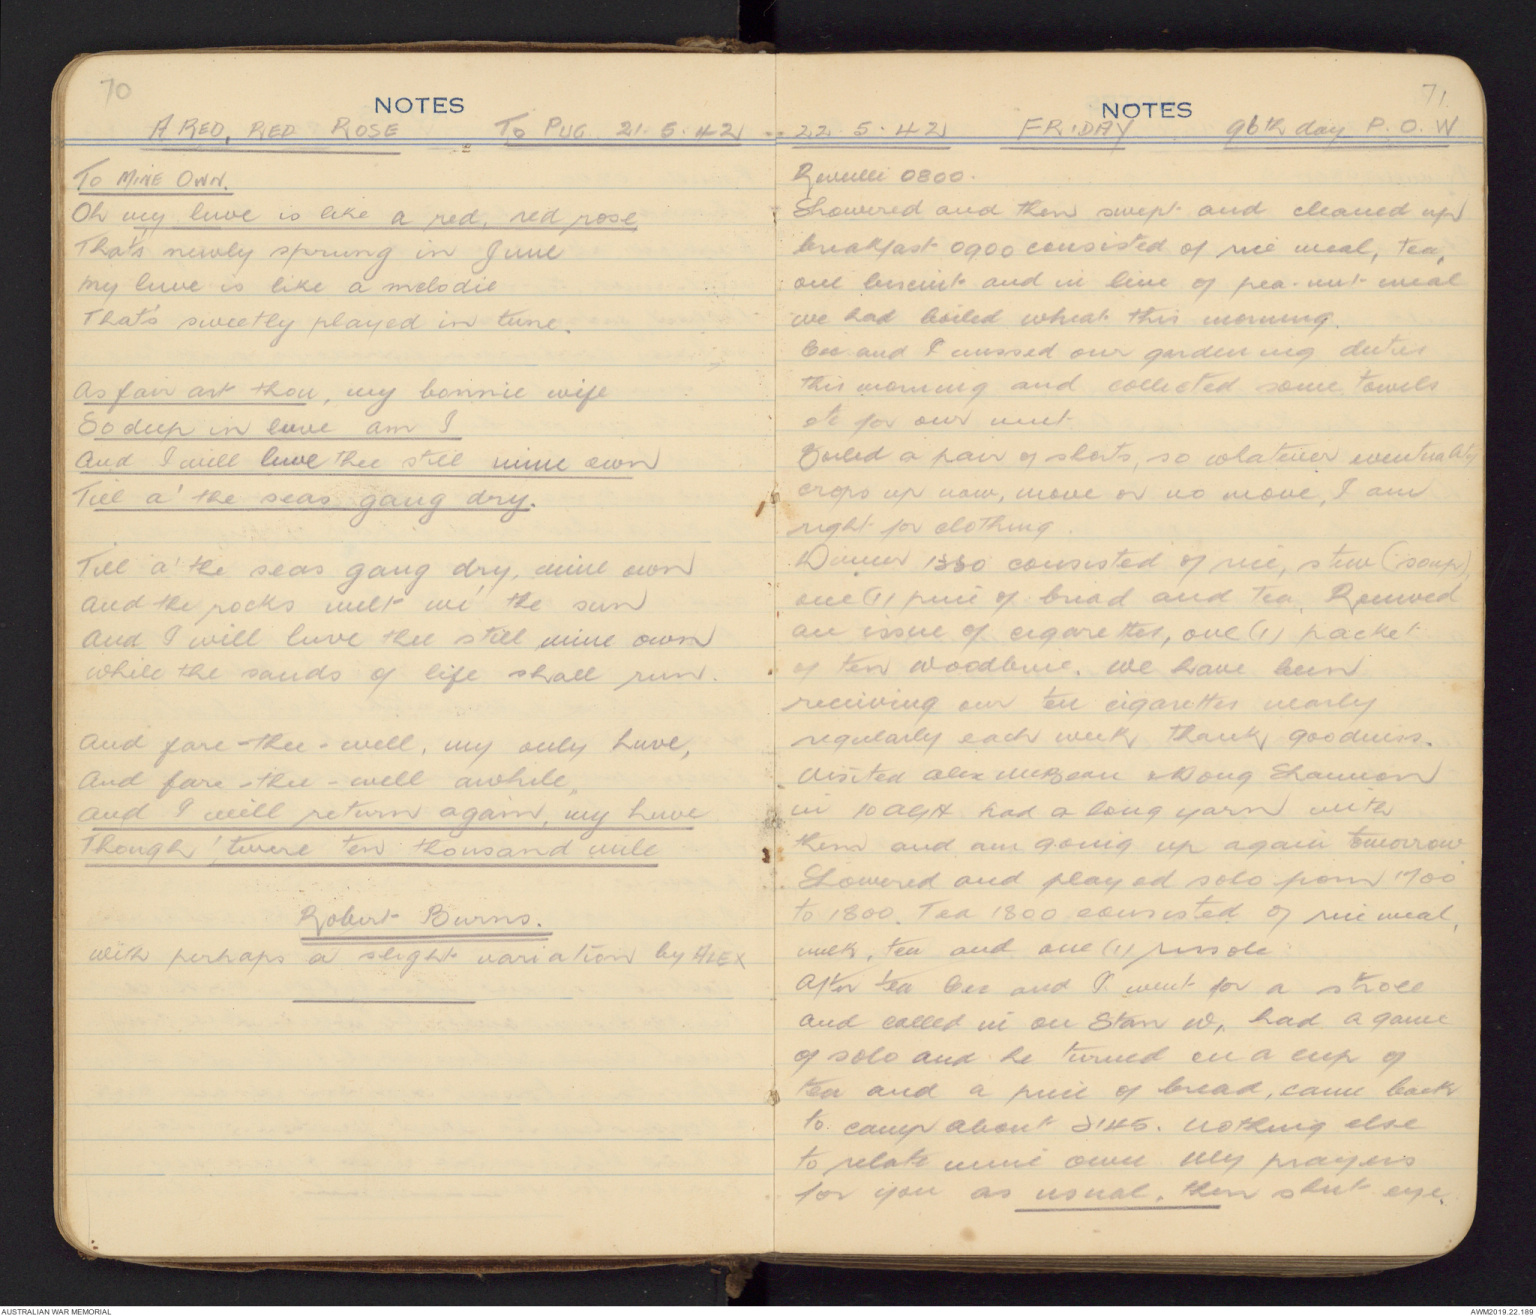 70
NOTES
A RED, RED ROSE To PUG 21.5.42
To MINE OWN.
Oh my luve is like a red, red rose
That's newly sprung in June
My luve is like a melodie
That's sweetly played in tune.
As fair art thou, my bonnie wife
So deep in luve am I
And I will luve thee still mine own
Till a' the seas gang dry.
Till a' the seas gang dry, mine own
And the rocks melt wi' the sun
And I will luve thee still mine own
While the sands of life shall run.
And fare-thee-well, my only luve,
And fare-thee-well awhile,
And I will return again, my luve
Though 'twere ten thousand mile
Robert Burns.
with perhaps a slight variation by ALEX
71
NOTES
22.5.42 FRIDAY 96th day P.O.W
Reveille 0800.
Showered and then swept and cleaned up
breakfast 0900 consisted of rice meal, tea,
one biscuit and in lieu of pea-nut meal
we had boiled wheat this morning.
Cec and I missed our gardening duties
this morning and collected some towels
etc for our unit
Boiled a pair of shorts, so whatever eventuality
crops up now, move or no move, I am
right for clothing.
Dinner 1330 consisted of rice, stew (soup),
one (1) piece of bread and tea. Received
an issue of cigarettes, one (1) packet
of ten Woodbine. We have been
receiving our ten cigarettes nearly
regularly each week, thank goodness.
Visited Alex McBean & Doug Shannon
in 10 AGH had a long yarn with
them and am going up again tomorrow
Showered and played solo from 1700
to 1800. Tea 1800 consisted of rice meal,
milk, tea and one (1) rissole
After tea Cec and I went for a stroll
and called in on Stan W, had a game
of solo and he turned on a cup of
tea and a piece of bread, came back
to camp about 2145. Nothing else
to relate mine own My prayers
for you as usual, then shut eye.
AUSTRALIAN WAR MEMORIAL
AWM2019.22.189